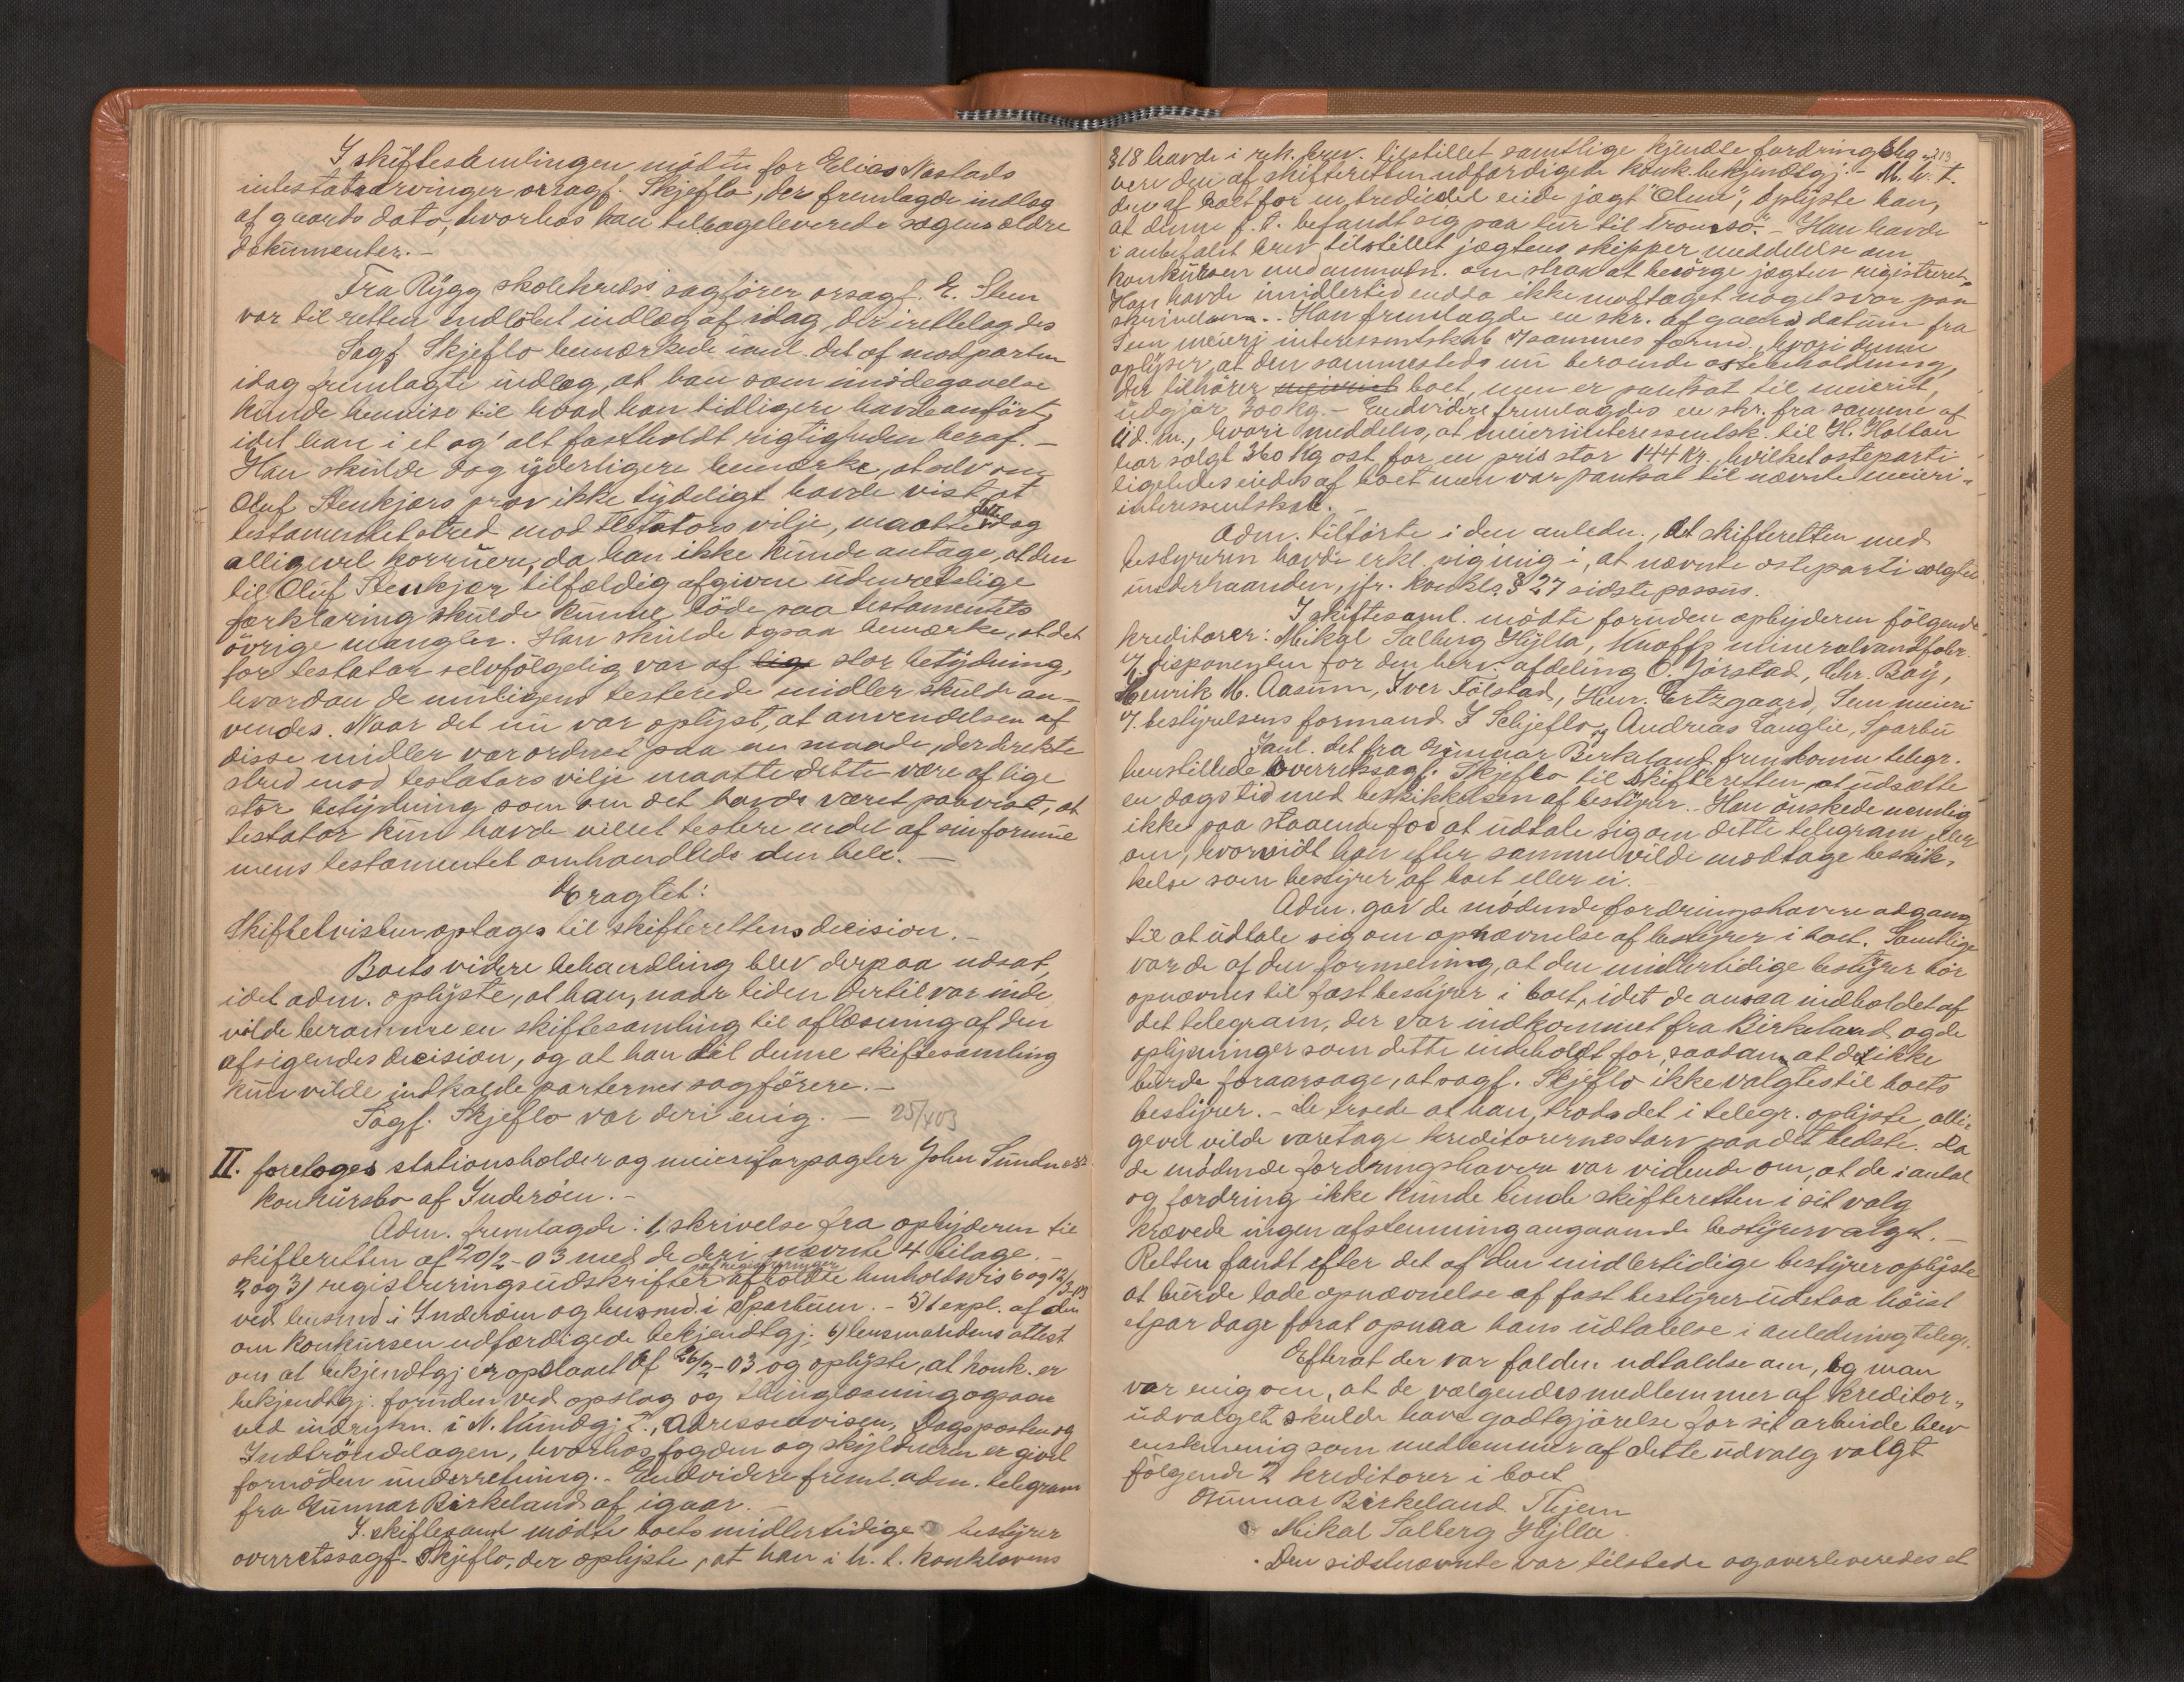 I skiftesamlingen mødte for Elias Nastads
intestatarvinger orsagf. Skjeflo, der fremlagde indlæg
af gaards dato, hvorhos han tilbageleverede sagens ældre
dokumenter. -
Fra Rygg skolekreds's sagfører orsagf. E. Sten
var til retten indløbet indlæg af idag, der irettelagdes
Sagf. Skjeflo bemærkede i anl. det af modparten
idag fremlagte indlæg, at han som imødegaaelse
kunde henvise til hvad han tidligere havde anført,
idet han i et og alt fastholdt rigtigheden heraf. -
Han skulde dog yderligere bemærke, at selv om
Oluf Stenkjærs prov ikke tydeligt havde vist, at
testamentet stred mod testators vilje, maatte dette dog
alligevel korruere, da han ikke kunde antage, at den
til Oluf Stenkjær tilfældig afgivne udenretslige
forklaring skulde kunne bøde paa testamentets
øvrige mangler. Han skulde ogsaa bemærke, at det
for testator selvfølgelig var af lige stor betydning,
hvordan de umiligens testerede midler skulde an-
vendes. Naar det nu var oplyst, at anvendelsen af
disse midler var ordnet paa en maade, der direkte
stred mod testators vilje maatte dette være af lige
stor betydning som om det havde været paavist, at
testator kun havde villet testere endel af sin formue
mens testamentet omhandlede den hele. -
Eragtet:
Skiftetvisten optages til skifterettens decision. -
Boets videre behandling blev derpaa udsat,
idet adm. oplyste, at han, naar tiden dertil var inde
vilde beramme en skiftesamling til aflæsning af den
afsigendes decision, og at han til denne skiftesamling
kun vilde indkalde parternes sagførere. -
Sagf. Skjeflo var deri enig. - 25/4 03
II. foretoges stationsholder og meieriforpagter John Sundnes's
konkursbo af Inderøen. -
Adm. fremlagde: 1, skrivelse fra opbyderen til
skifteretten af 20/2 - 03 med de deri nævnte 4 bilage. -
2 og 3) registreringsudskrifter af registreringer afholdte henholdsvis 6 og 12/3 - 03
ved lensmd. i Inderøen og lensmd. i Sparbuen. - 5) 1 expl. af den
om konkursen udfærdigede bekjendtgj; 6) lensmandens attest
om at bekjendtgj er opslaaet af 26/2 - 03 og oplyste, at konk. er
bekjendtgj. foruden ved opslag og thinglæsning ogsaa
ved indrykn. i N. kundgj.t., Adresseavisen, Dagsposten og
Indtrøndelagen, hvorhos fogden og skyldneren er givet
fornøden underretning. - Endvidere freml. adm. telegram
fra Gunnar Birkeland af igaar. -
I skiftesaml mødte boets midlertidige bestyrer
overretssagf. Skjeflo, der oplyste, at han i h. t. konklovens
§ 18 havde i rek. brev. tilstillet samtlige kjendte fordringsha- 213
vere den af skifteretten udfærdigede konk. bekjendtgj. - M. h. t.
den af boet for en trediedel eiede jagt "Olene", oplyste han,
at denne f. t. befandt sig paa tur til Tromsø. - Han havde
i anbefalet brev tilstillet jagtens skipper meddelelse om
konkursen med anmodn. om strax at besørge jagten registreret.
Han havde imidlertid endda ikke modtaget noget svar paa
skrivelsen. - Han fremlagde en skr. af gaars datum fra
Seen meieri interessentskab v/ sammes formd., hvori denne
oplyser, at den sammesteds nu beroende ostebeholdning,
der tilhører meieriet boet, men er pantsat til meieriet,
udgjør 300 kg. - Endvidere fremlagdes en skr. fra samme af
s. d., hvori meddeles, at meieriinteressentsk. til H. Holtan
har solgt 360 kg ost for en pris stor 144 kr., hvilket osteparti
ligeledes eiedes af boet men var pantsat til nævnte meieri-
interessentskab. -
Adm. tilførte i den anledn., at skifteretten med
bestyreren havde erkl. sig enig i, at nævnte osteparti solgtes
underhaanden, jfr. konkls. § 27 sidste passus.
I skiftesaml. mødte foruden opbyderen følgende
kreditorer: Mikal Salberg Hylla, Knoffs mineralvandfabr.
v/ disponenten for den herv. afdeling O. Gjørstad, Chr. Bay,
Henrik M. Aasum, Iver Tølstad, Henr. Ertzgaard, Seen meieri
v. bestyrelsens formand I Schjeflo og Andreas Langlie, Sparbu
I anl. det fra Gunnar Birkeland fremkomne telegr.
henstillede overretssagf. Skjeflo til skifteretten at udsætte
en dags tid med beskikkelsen af bestyrer. Han ønskede nemlig
ikke paa staaende fod at udtale sig om dette telegram, eller
om, hvorvidt han efter samme vilde modtage beskik-
kelse som bestyrer af boet eller ei. -
Adm. gav de mødende fordringshavere adgang
til at udtale sig om opnævnelse af bestyrer i boet. Samtlige
var de af den formening, at den midlertidige bestyrer bør
opnævnes til fast bestyrer i boet, idet de ansaa indholdet af
det telegram, der var indkommet fra Birkeland og de
oplysninger som dette indeholdt for saadan, at det ikke
burde foraarsage, at sagf. Skjeflo ikke valgtes til boets
bestyrer. - De troede at han, trods det i telegr. oplyste, alli-
gevel vilde varetage kreditorernes tarv paa det bedste. Da
de mødende fordringshavere var vidende om, at de i antal
og fordring ikke kunde binde skifteretten i sit valg
krævede ingen afstemning angaaende bestyrervalget. -
Retten fandt efter det af den midlertidige bestyrer oplyste
at burde lade opnævnelse af fast bestyrer udstaa høist
et par dage forat opnaa hans udtalelse i anledning telegr.
Efterat der var falden udtalelse om, og man
var enig om, at de vælgendes medlemmer af kreditor-
udvalget skulde have godtgjørelse for sit arbeide blev
enstemmig som medlemmer af dette udvalg valgt
følgende 2 kreditorer i boet
Gunnar Birkeland
Mikal Salberg Hylla.
Den sidstnævnte var tilstede og overleveredes et